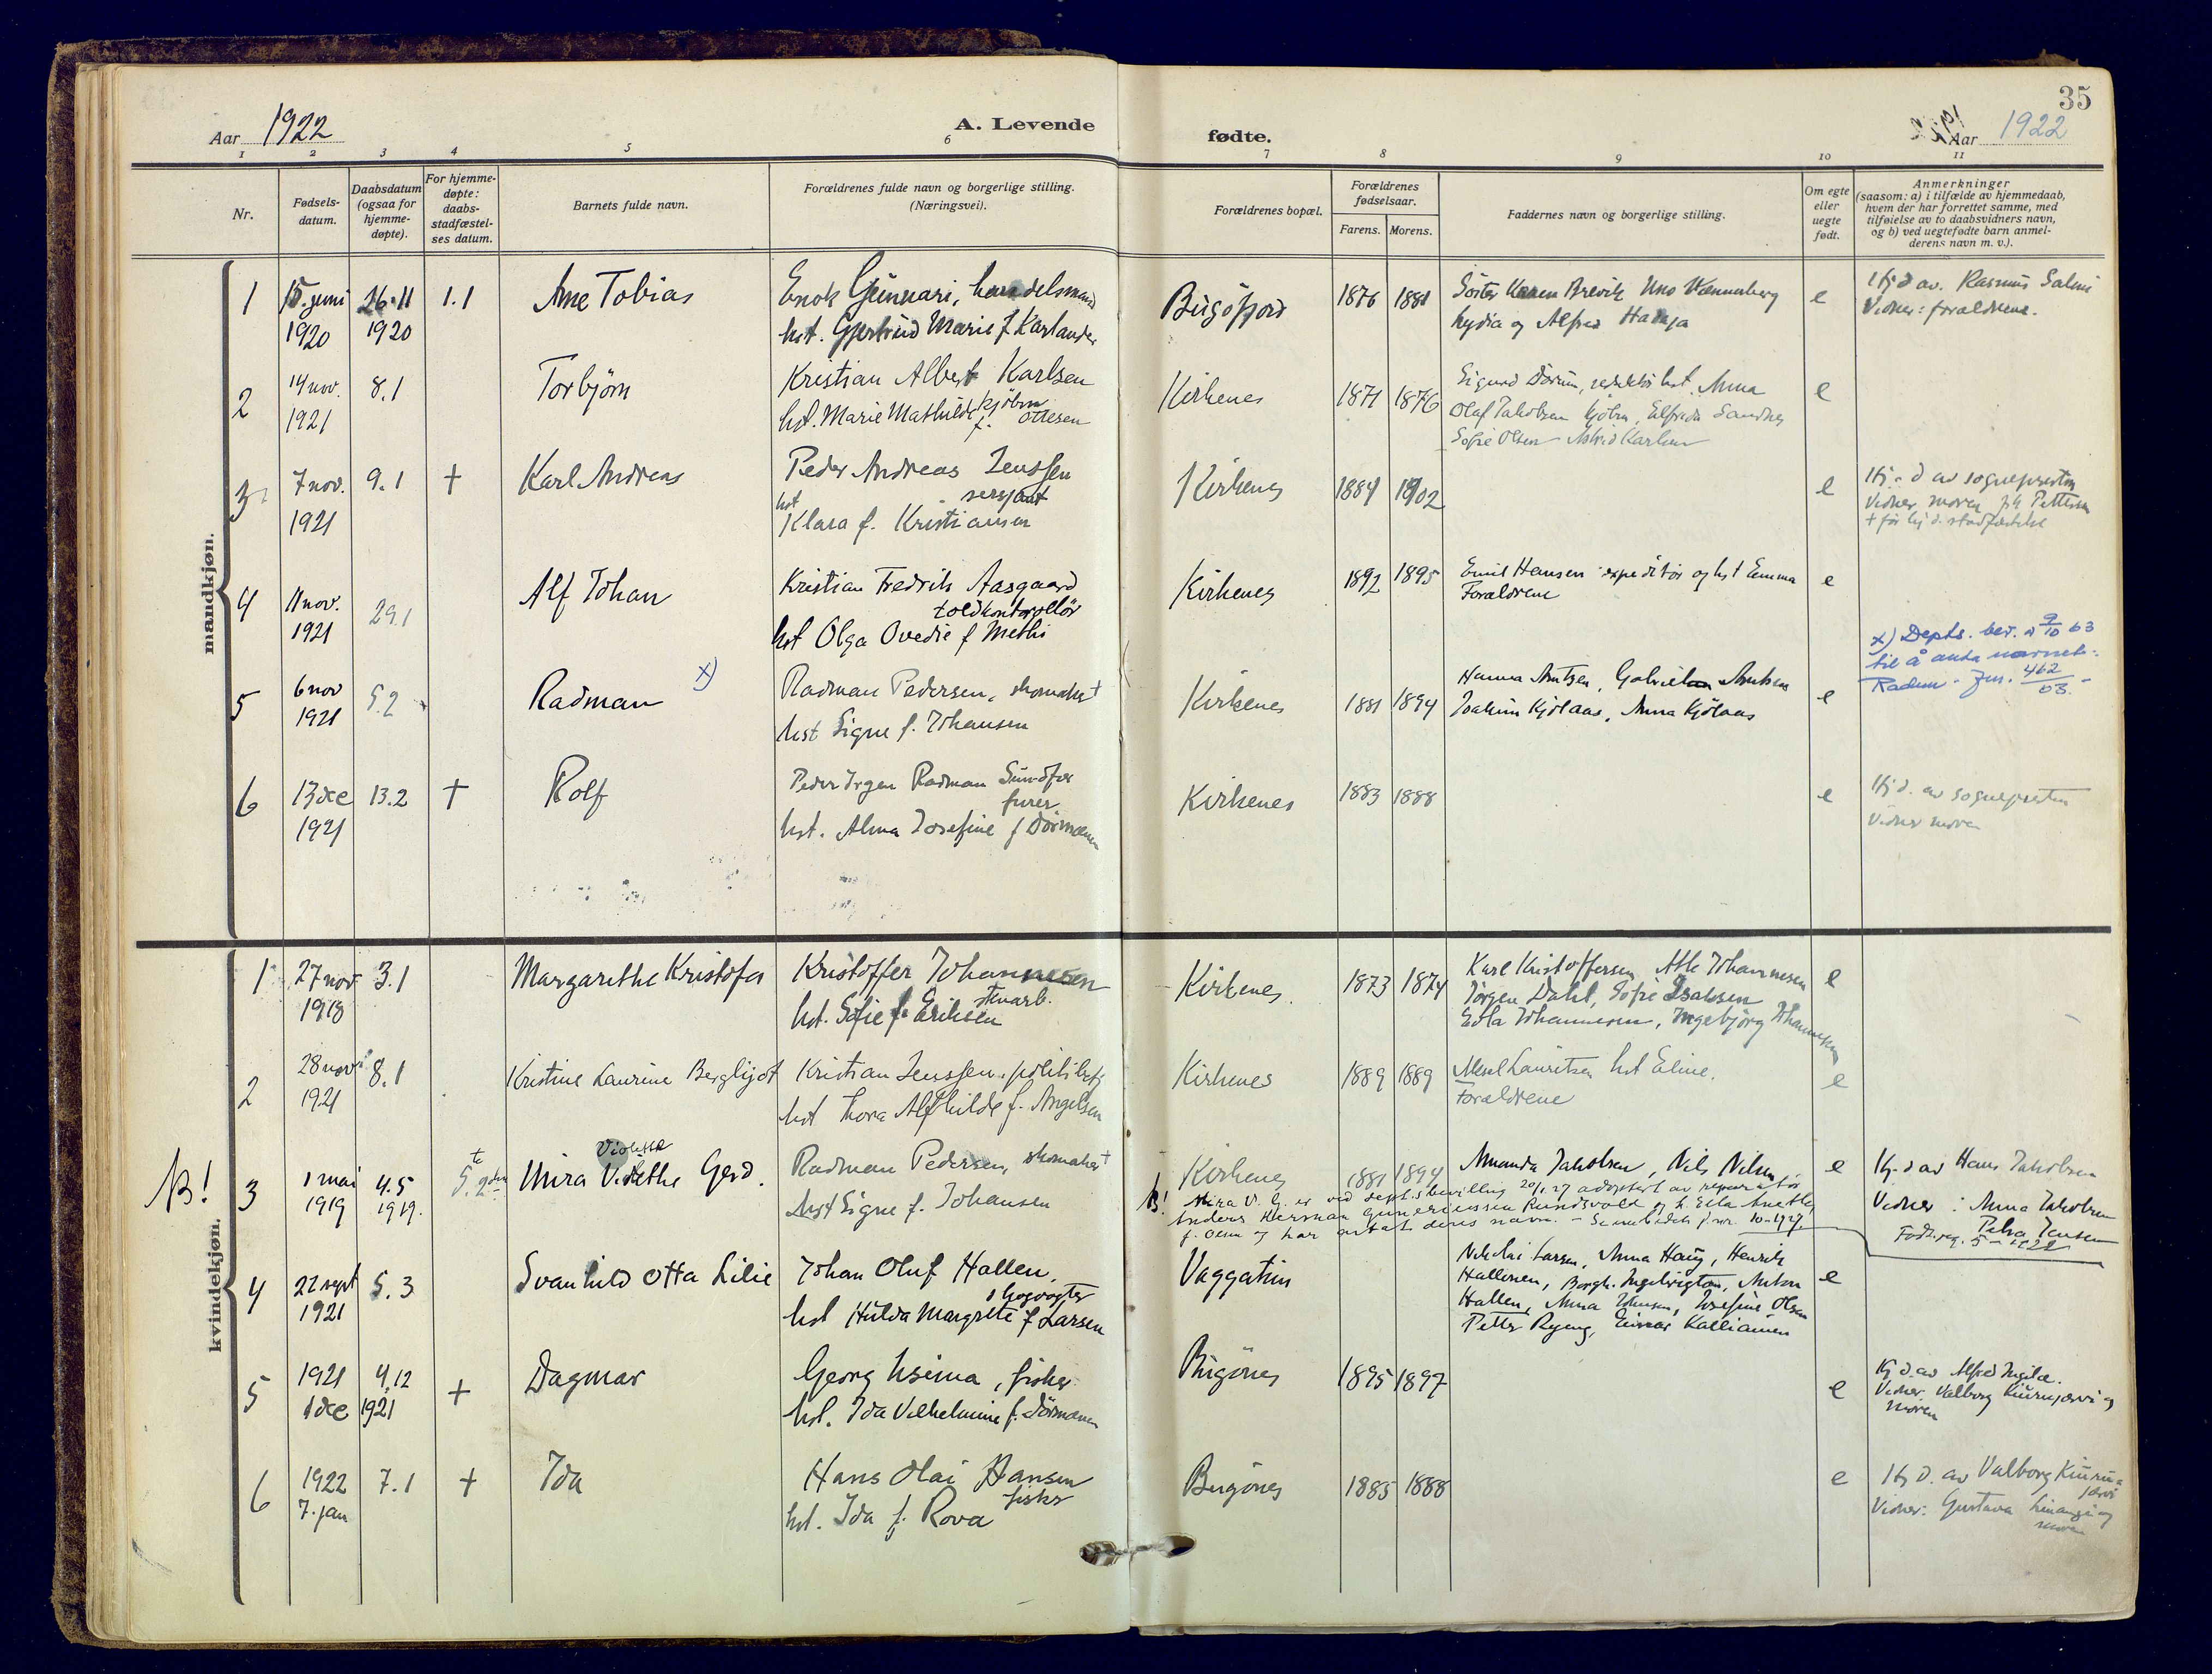 Aar 1922
A. Levende fødte.
Aar 1922
35
1 2 3 4 5 6 7 8 9 10 11
Nr.
Fødsels-
datum.
Daabsdatum
(ogsaa for
hjemme-
døpte).
For hjemme-
døpte:
daabs-
stadfæstel-
ses datum.
Barnets fulde navn.
Forældrenes fulde navn og borgerlige stilling.
(Næringsvei).
Forældrenes bopæl.
Forældrenes
fødselsaar.
Farens. Morens.
Faddernes navn og borgerlige stilling.
Om egte
eller
uegte
født.
Anmerkninger
(saasom: a) i tilfælde av hjemmedaab,
hvem der har forrettet samme, med
tilføielse av to daabsvidners navn,
og b) ved uegtefødte barn anmel-
derens navn m. v.).
mandkjøn.
1 15. juni 26.11 1.1 Arne Tobias Enok Gunnari, handelsmand Bugöfjord 1876 1881 Söster Karen Brevik Uno Wannenberg e Hj d av. Rasmus Salmi
1920 1920 hst. Gjertrud Marie f Karlander Lydia og Alfred Vidner: foraldrene.
2 14 nov. 8.1 Torbjörn Kristian Albert Karlsen Kirkenes 1871 1876 Sigurd, redaktör hst. Anna e
1921 kjöbm
hst. Marie Mathilde f. Ottesen Olaf Jakobsen kjöbm, Elfrida Sandnes
Sofie Olsen Astrid Karlsen
3 7 nov. 9.1 + Karl Andreas Peder Andreas Jenssen Kirkenes 1884 1902 e Hj. d av sognepresten
1921 sersjant
hst Klara f. Kristiansen Vidner moren Pettersen
+ før hj d. stadfæstelse
4 11 nov. 29.1 Alf Johan Kristian Fredrik Aasgaard Kirkenes 1892 1895 Emil Hansen expeditör og hst Emma e
1921 toldkontorollör Foraldrene
hst Olga Ovedie f Methi
5 6 nov 5.2 Radman x) Radman Pedersen, skomaker Kirkenes 1881 1894 Hanna Arntzen, Arntsen e x) Depts. bev. a 9/10 63
1921 hst Signe f. Johansen Joakim Kjölaas, Anna Kjölaas til å anta navnet:
462/63
6 13 dec 13.2 + Rolf Peder Radman Sundfær Kirkenes 1883 1888 e Hj d. av sognepresten
1921 furer
hst. Alma Josefine f Dörmænen Vidner moren
kvindekjøn.
1 27 nov 3.1 Margarethe Kristofa Kristoffer Johannesen Kirkenes. 1873 1874 Karl Kristoffersen, Atle Johannesen e
1918 hst. Sofie f. Eriksen Jörgen Dahl, Sofie Isaksen
Edla Johannesen, Ingebjörg Johannesen
2 28 nov 8.1 Kristine Laurine Bergliot Kristian Jenssen. politibetj Kirkenes 1889 1889 Aksel Lauritsen hst Eline. e
1921 hst Thora Alfhilde f. Angelsen Foraldrene
NB! 3 1 mai 4.5 Violette
1919 1919. Mira Gerd. Radman Pedersen, skomaker Kirkenes 1881 1894 Amanda Jakobsen, Nils Nilsen e Hj. d av Hans Jakobsen
hst Signe f. Johansen Vidner: Anna Jakobsen
Petra Jensen
NB! Mira V. G. er ved dept.s bevilling 20/1 27 adoptert av reparatör
Anders Herman Gunerius
f. Olsen og har antat deres navn. 10-1927.
4 22 sept 5.3 Svanhild Otta Lilie Johan Oluf Hallen, Vaggatem Nikolai Larsen, Anna Haug, Henrik e
1921 skogvogter Hallonen, Borgh. Anton
hst Hulda Margrete f Larsen Hallen, Anna Johansen, Josefine Olsen
Petter Ryeng, Einar
5 1921 4.12 + Dagmar Georg, fisker Bugönes 1895 1897 e Hj d. av Alfred
1 dec 1921 hst. Ida Vilhelmine f. Dörmænen Vidner. Valborg og
moren
6 1922 7.1 + Ida Hans Olai Hansen Bugönes 1885 1888 e Hj d. av Valborg
7. jan fisker
hst. Ida f. Rova Vidner: Gustava og
moren